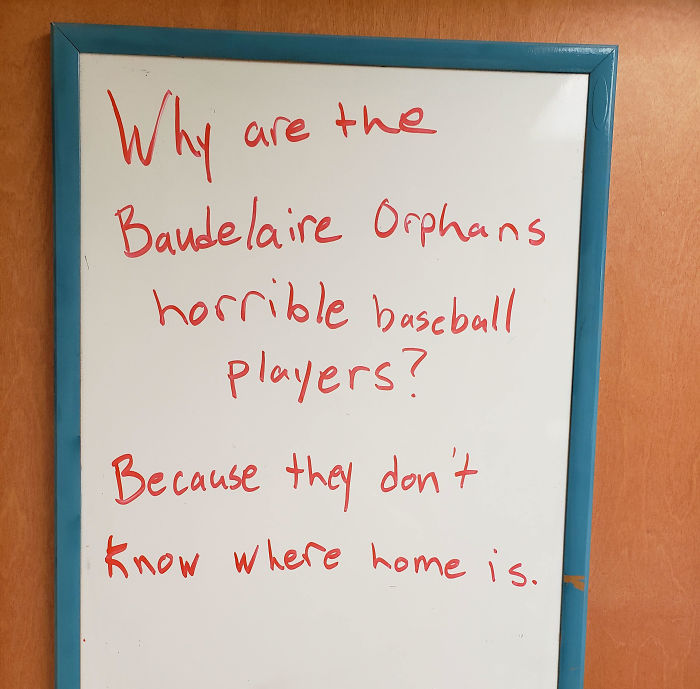 Why are the
Baudelaire Orphans
horrible baseball
players?
Because they don't
know where home is.